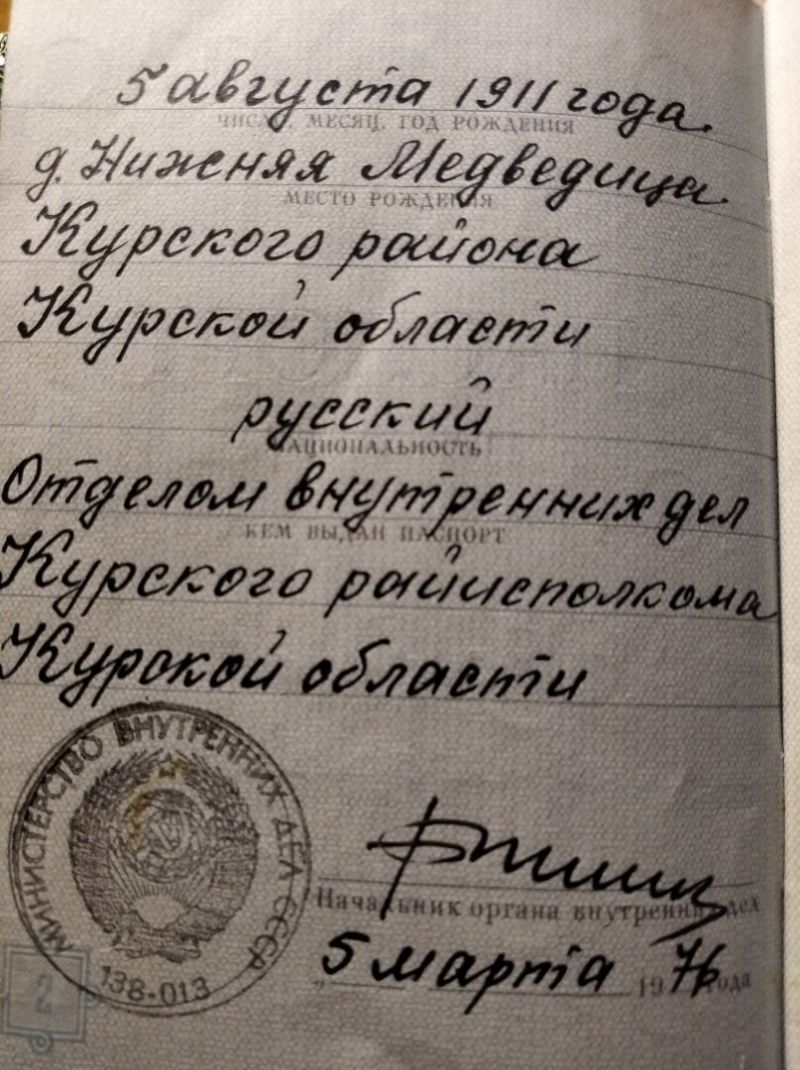 5 августа 1911 года.
ЧИСЛО, МЕСЯЦ, ГОД РОЖДЕНИЯ
д. Нижняя Медведица
МЕСТО РОЖДЕНИЯ
Курского района
Курской области
русский
НАЦИОНАЛЬНОСТЬ
Отделом внутренних дел
КЕМ ВЫДАН ПАСПОРТ
Курского райисполкома
Курской области
МИНИСТЕРСТВО ВНУТРЕННИХ ДЕЛ СССР
138-013
Начальник органа внутренних дел
5 марта 1976 года
2